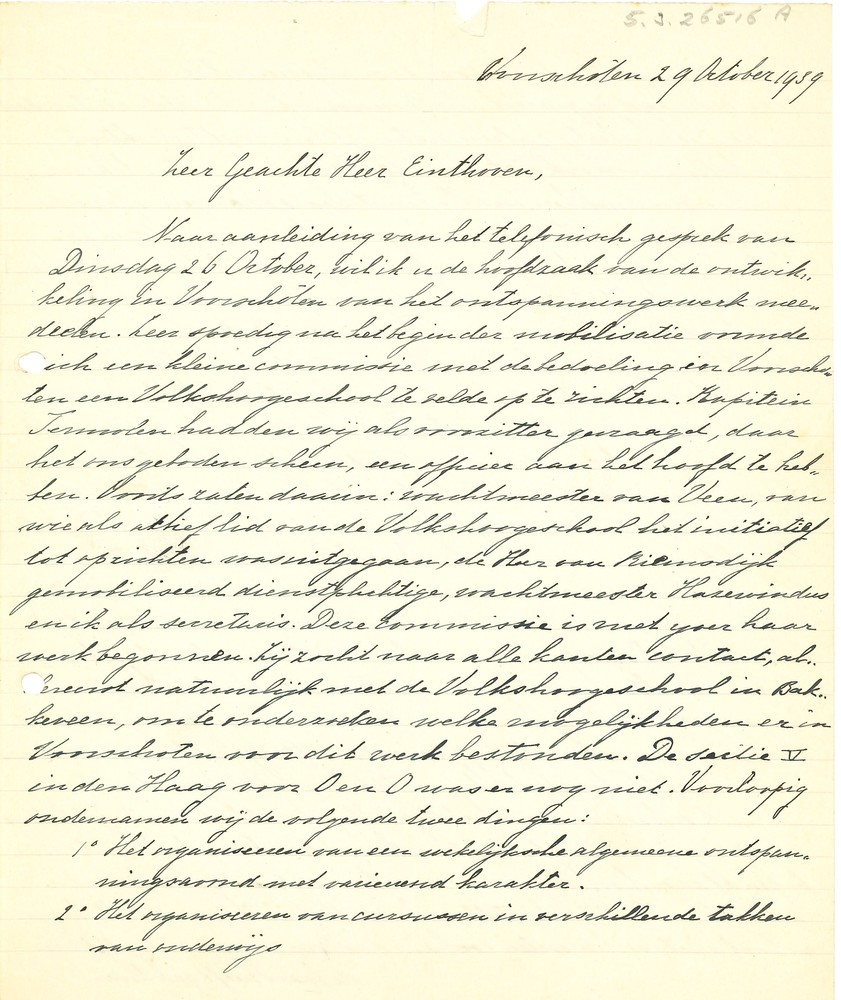 5.3.26516 A
Voorschoten 29 October 1939
Zeer Geachte Heer Einthoven,
Naar aanleiding van het telefonisch gesprek van
Dinsdag 26 October, wil ik u de hoofdzaak van de ontwik„
keling in Voorschoten van het ontspanningswerk mee„
deelen. Zeer spoedig na het begin der mobilisatie vormde
zich een kleine commissie met de bedoeling in Voorscho„
ten een Volkshoogeschool te velde op te richten. Kapitein
Termolen hadden wij als voorzitter gevraagd, daar
het ons geboden scheen, een officier aan het hoofd te heb„
ben. Voorts zaten daarin: wachtmeester van Veen, van
wie als aktief lid van de Volkshoogeschool het initiatief
tot oprichten was uitgegaan, de Heer van Riemsdijk
gemobiliseerd dienstplichtige, wachtmeester Hazewindus
en ik als secretaris. Deze commissie is met yver haar
werk begonnen. Zij zocht naar alle kanten contact, al„
lereerst natuurlijk met de Volkshoogeschool in Bak„
keveen, om te onderzoeken welke mogelijkheden er in
Voorschoten voor dit werk bestonden. De sectie V
in den Haag voor O en O was er nog niet. Voorloopig
ondernamen wij de volgende twee dingen:
1° Het organiseeren van een wekelijksche algemeene ontspan„
ningsavond met varieerend karakter.
2° Het organiseeren van cursussen in verschillende takken
van onderwijs